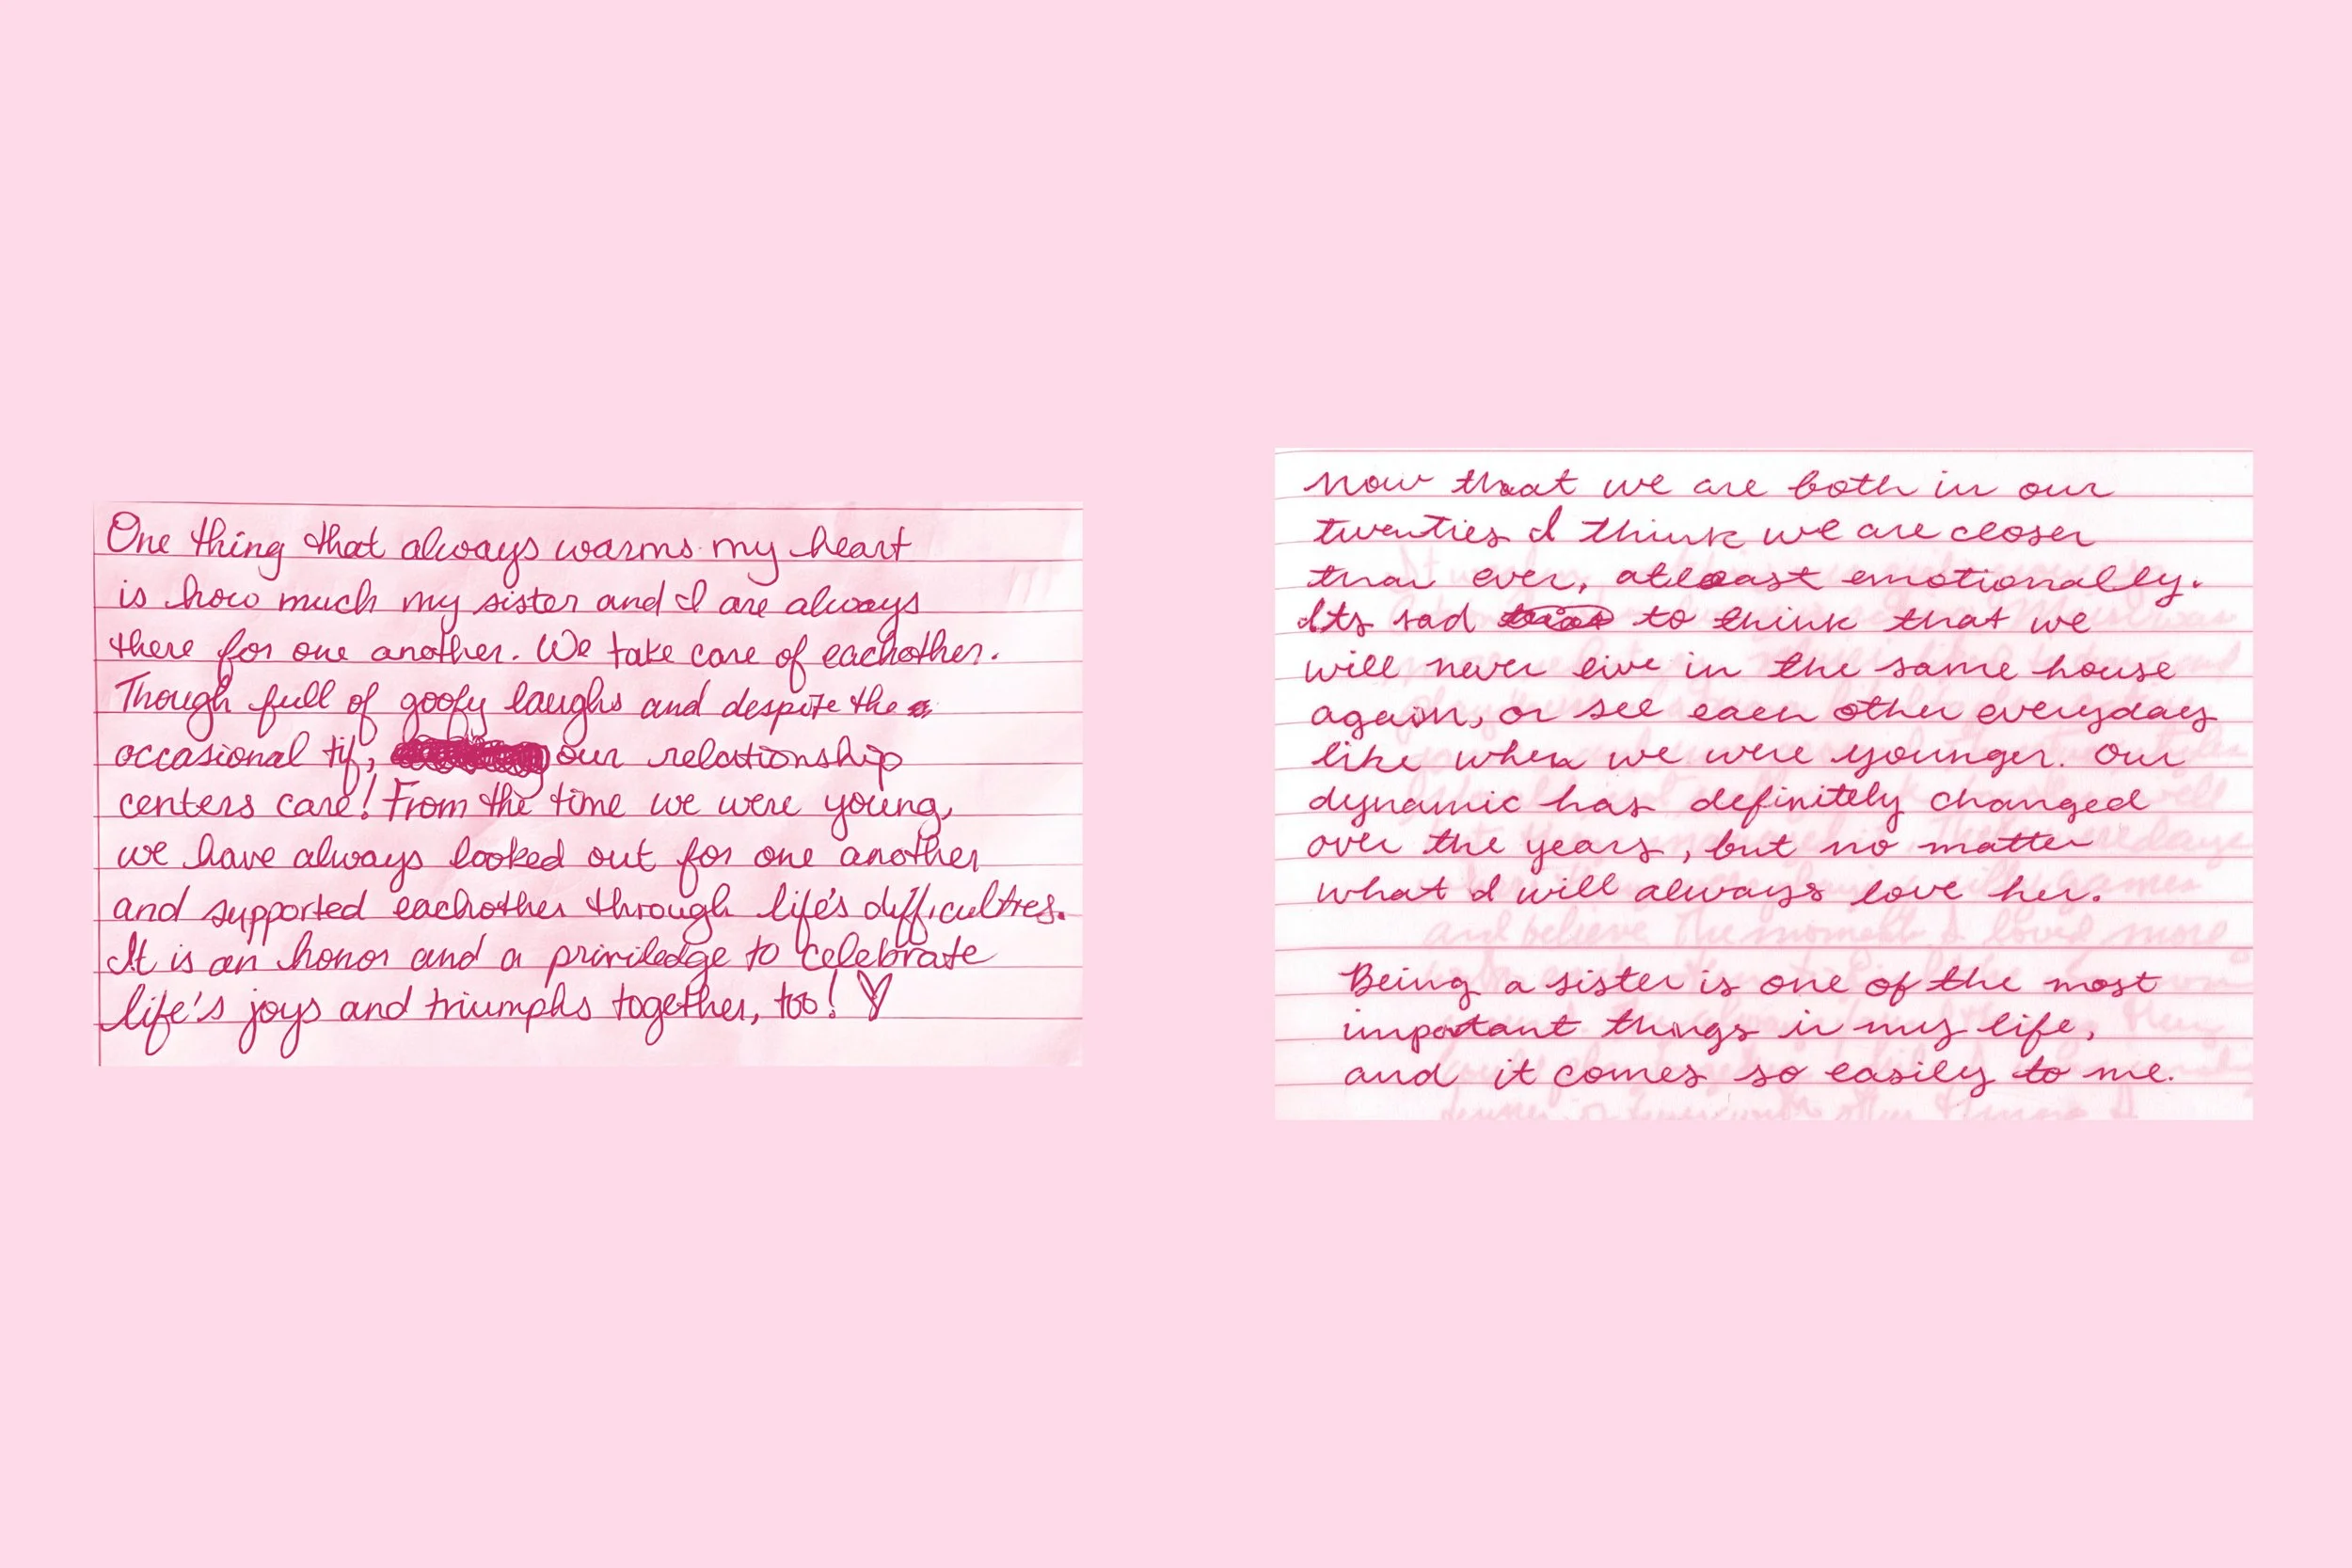 One thing that always warms my heart
is how much my sister and I are always
there for one another. We take care of eachother.
Though full of goofy laughs and despite the
occasional tif, our relationship
centers care! From the time we were young,
we have always looked out for one another
and supported eachother through life's difficulties.
It is an honor and a priviledge to celebrate
life's joys and triumphs together, too! ♡
Now that we are both in our
twenties I think we are closer
than ever, atleast emotionally.
Its sad to think that we
will never live in the same house
again, or see each other everyday
like when we were younger. Our
dynamic has definitely changed
over the years, but no matter
what I will always love her.
Being a sister is one of the most
important things in my life,
and it comes so easily to me.